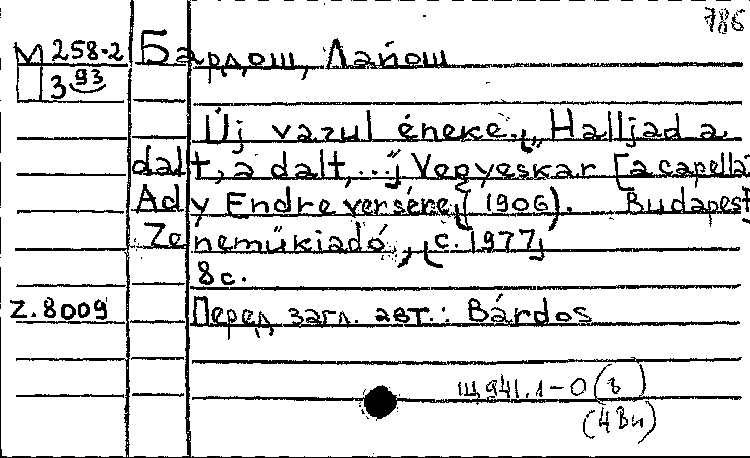 786
М 258-2
3 93
Бардош, Лайош
Új vazul éneke. „Halljad a
dalt, a dalt,...” Vegyeskar [a capella]
Ady Endre versére, (1906). Budapest
Zeneműkiadó, [c. 1977]
8 с.
Z.8009
Перед загл. авт.: Bárdos
Щ941.1-0(ъ)
(4Вн)